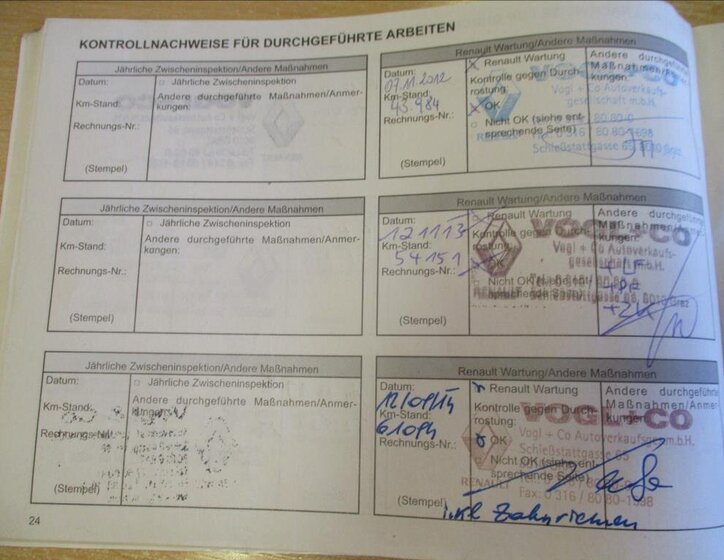 KONTROLLNACHWEISE FÜR DURCHGEFÜHRTE ARBEITEN
Jährliche Zwischeninspektion/Andere Maßnahmen
Datum:
□ Jährliche Zwischeninspektion
Km-Stand:
Andere durchgeführte Maßnahmen/Anmer-
kungen:
Rechnungs-Nr.:
(Stempel)
Renault Wartung/Andere Maßnahmen
Datum:
07.11.2012
Km-Stand:
43.984
Rechnungs-Nr.:
(Stempel)
Renault Wartung
Kontrolle gegen Durch-
rostung:
OK
Nicht OK (siehe ent-
sprechende Seite)
Andere durchgeführte
Maßnahmen/Anmer-
kungen:
VOGL+CO
Vogl + Co Autoverkaufs-
gesellschaft m.b.H.
Schießstattgasse 65, 8010 Graz
Jährliche Zwischeninspektion/Andere Maßnahmen
Datum:
□ Jährliche Zwischeninspektion
Km-Stand:
Andere durchgeführte Maßnahmen/Anmer-
kungen:
Rechnungs-Nr.:
(Stempel)
Renault Wartung/Andere Maßnahmen
Datum:
121113
Km-Stand:
54151
Rechnungs-Nr.:
(Stempel)
Renault Wartung
Kontrolle gegen Durch-
rostung:
OK
Nicht OK (siehe ent-
sprechende Seite)
Andere durchgeführte
Maßnahmen/Anmer-
kungen:
VOGL+CO
Vogl + Co Autoverkaufs-
gesellschaft m.b.H.
RENAULT
Schießstattgasse 65, 8010 Graz
+LF
+PF
+ZK
Jährliche Zwischeninspektion/Andere Maßnahmen
Datum:
□ Jährliche Zwischeninspektion
Km-Stand:
Andere durchgeführte Maßnahmen/Anmer-
kungen:
Rechnungs-Nr.:
(Stempel)
Renault Wartung/Andere Maßnahmen
Datum:
Km-Stand:
61094
Rechnungs-Nr.:
(Stempel)
Renault Wartung
Kontrolle gegen Durch-
rostung:
OK
Nicht OK (siehe ent-
sprechende Seite)
Andere durchgeführte
Maßnahmen/Anmer-
kungen:
VOGL+CO
Vogl + Co Autoverkaufsges.m.b.H.
Schießstattgasse 65
RENAULT
Fax: 0 316 / 80 80-1598
inkl Zahnriemen
24